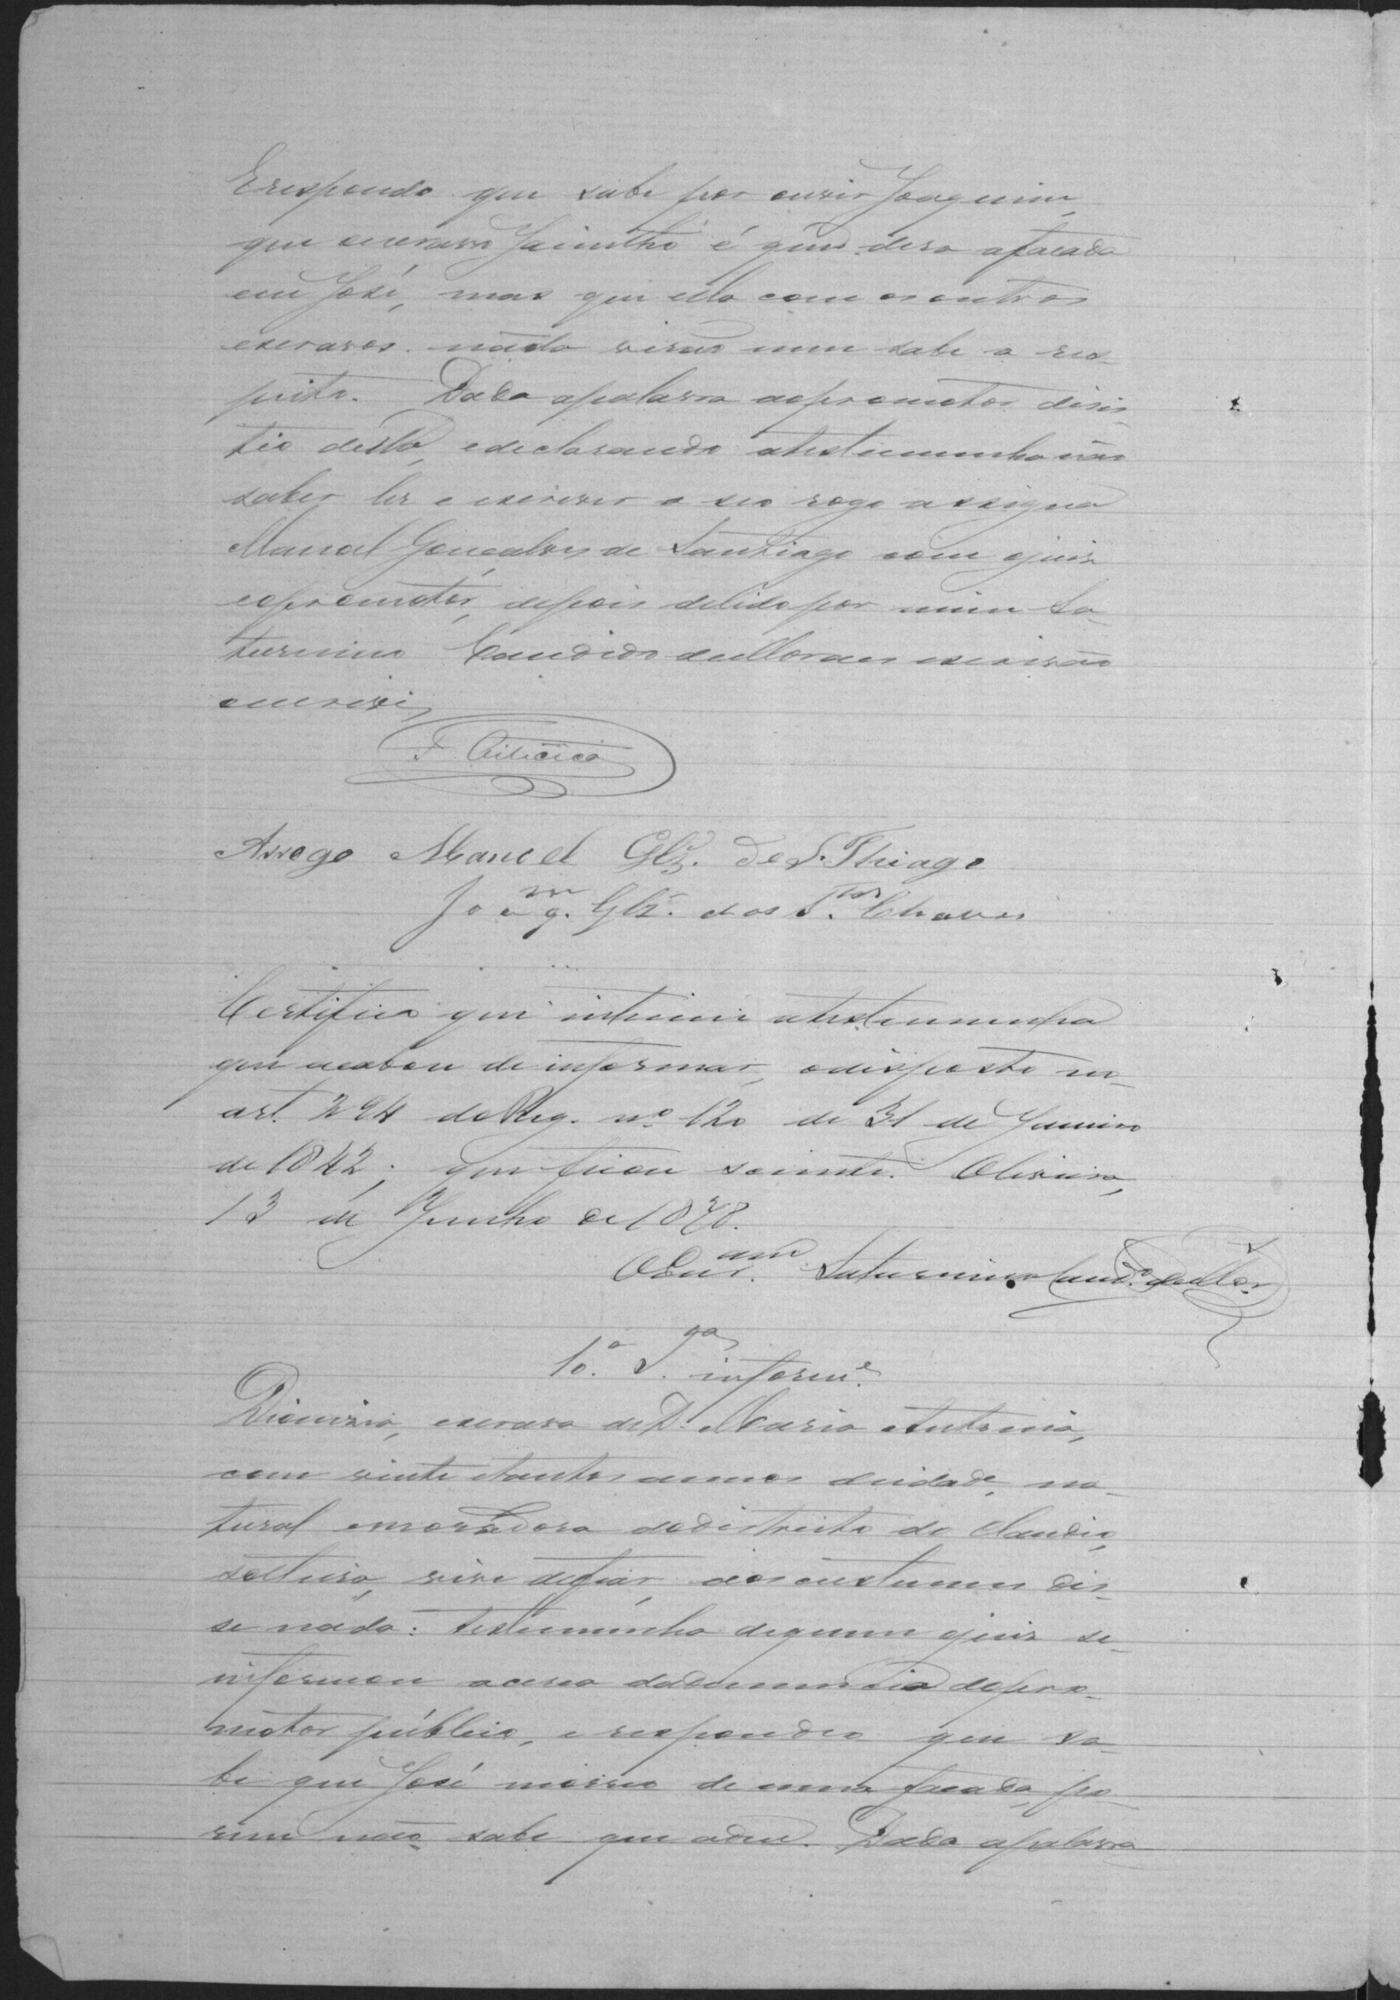 E respondo que sabe por ouvir Joaquim,
que escravo Jacintho é quem dera a facada
em José, mas que ella com os outros
escravos nada virão nem sabe a res-
peito. Dada a palavra ao promotor disis-
tio della, e declarando a testemunha não
saber ler e escrever a seo rogo assigna
Manoel Gonçalves de Santiago com o juiz
e o promotor, depois de lido por mim Sa-
turnino Candido de Moraes escrivão
o escrevi,
Arrogo Manoel Glz. de S. Thiago
Joaqm. Glz. dos Stos. Chaves
Certifico que intimei a testemunha
que acabou de informar, o disposto no
art. 294 do Reg. nº 120 de 31 de Janeiro
de 1842; que ficou sciente. Oliveira,
13 de Junho de 1878.
O Escram. Saturnino Candº. de Mor.
10.ª Tª. informe.
Dionizia, escrava de D. Maria Antonia,
com vinte e tantos annos de idade, na-
tural e moradora do districto do Claudio,
solteira, vive de fiar, aos custumes dis-
se nada: testemunha de quem o juiz se
informou acerca da denuncia do pro-
motor publico, e respondeo que sa-
be que José morreo de uma facada, po-
rem não sabe quem a deu. Dada a palavra